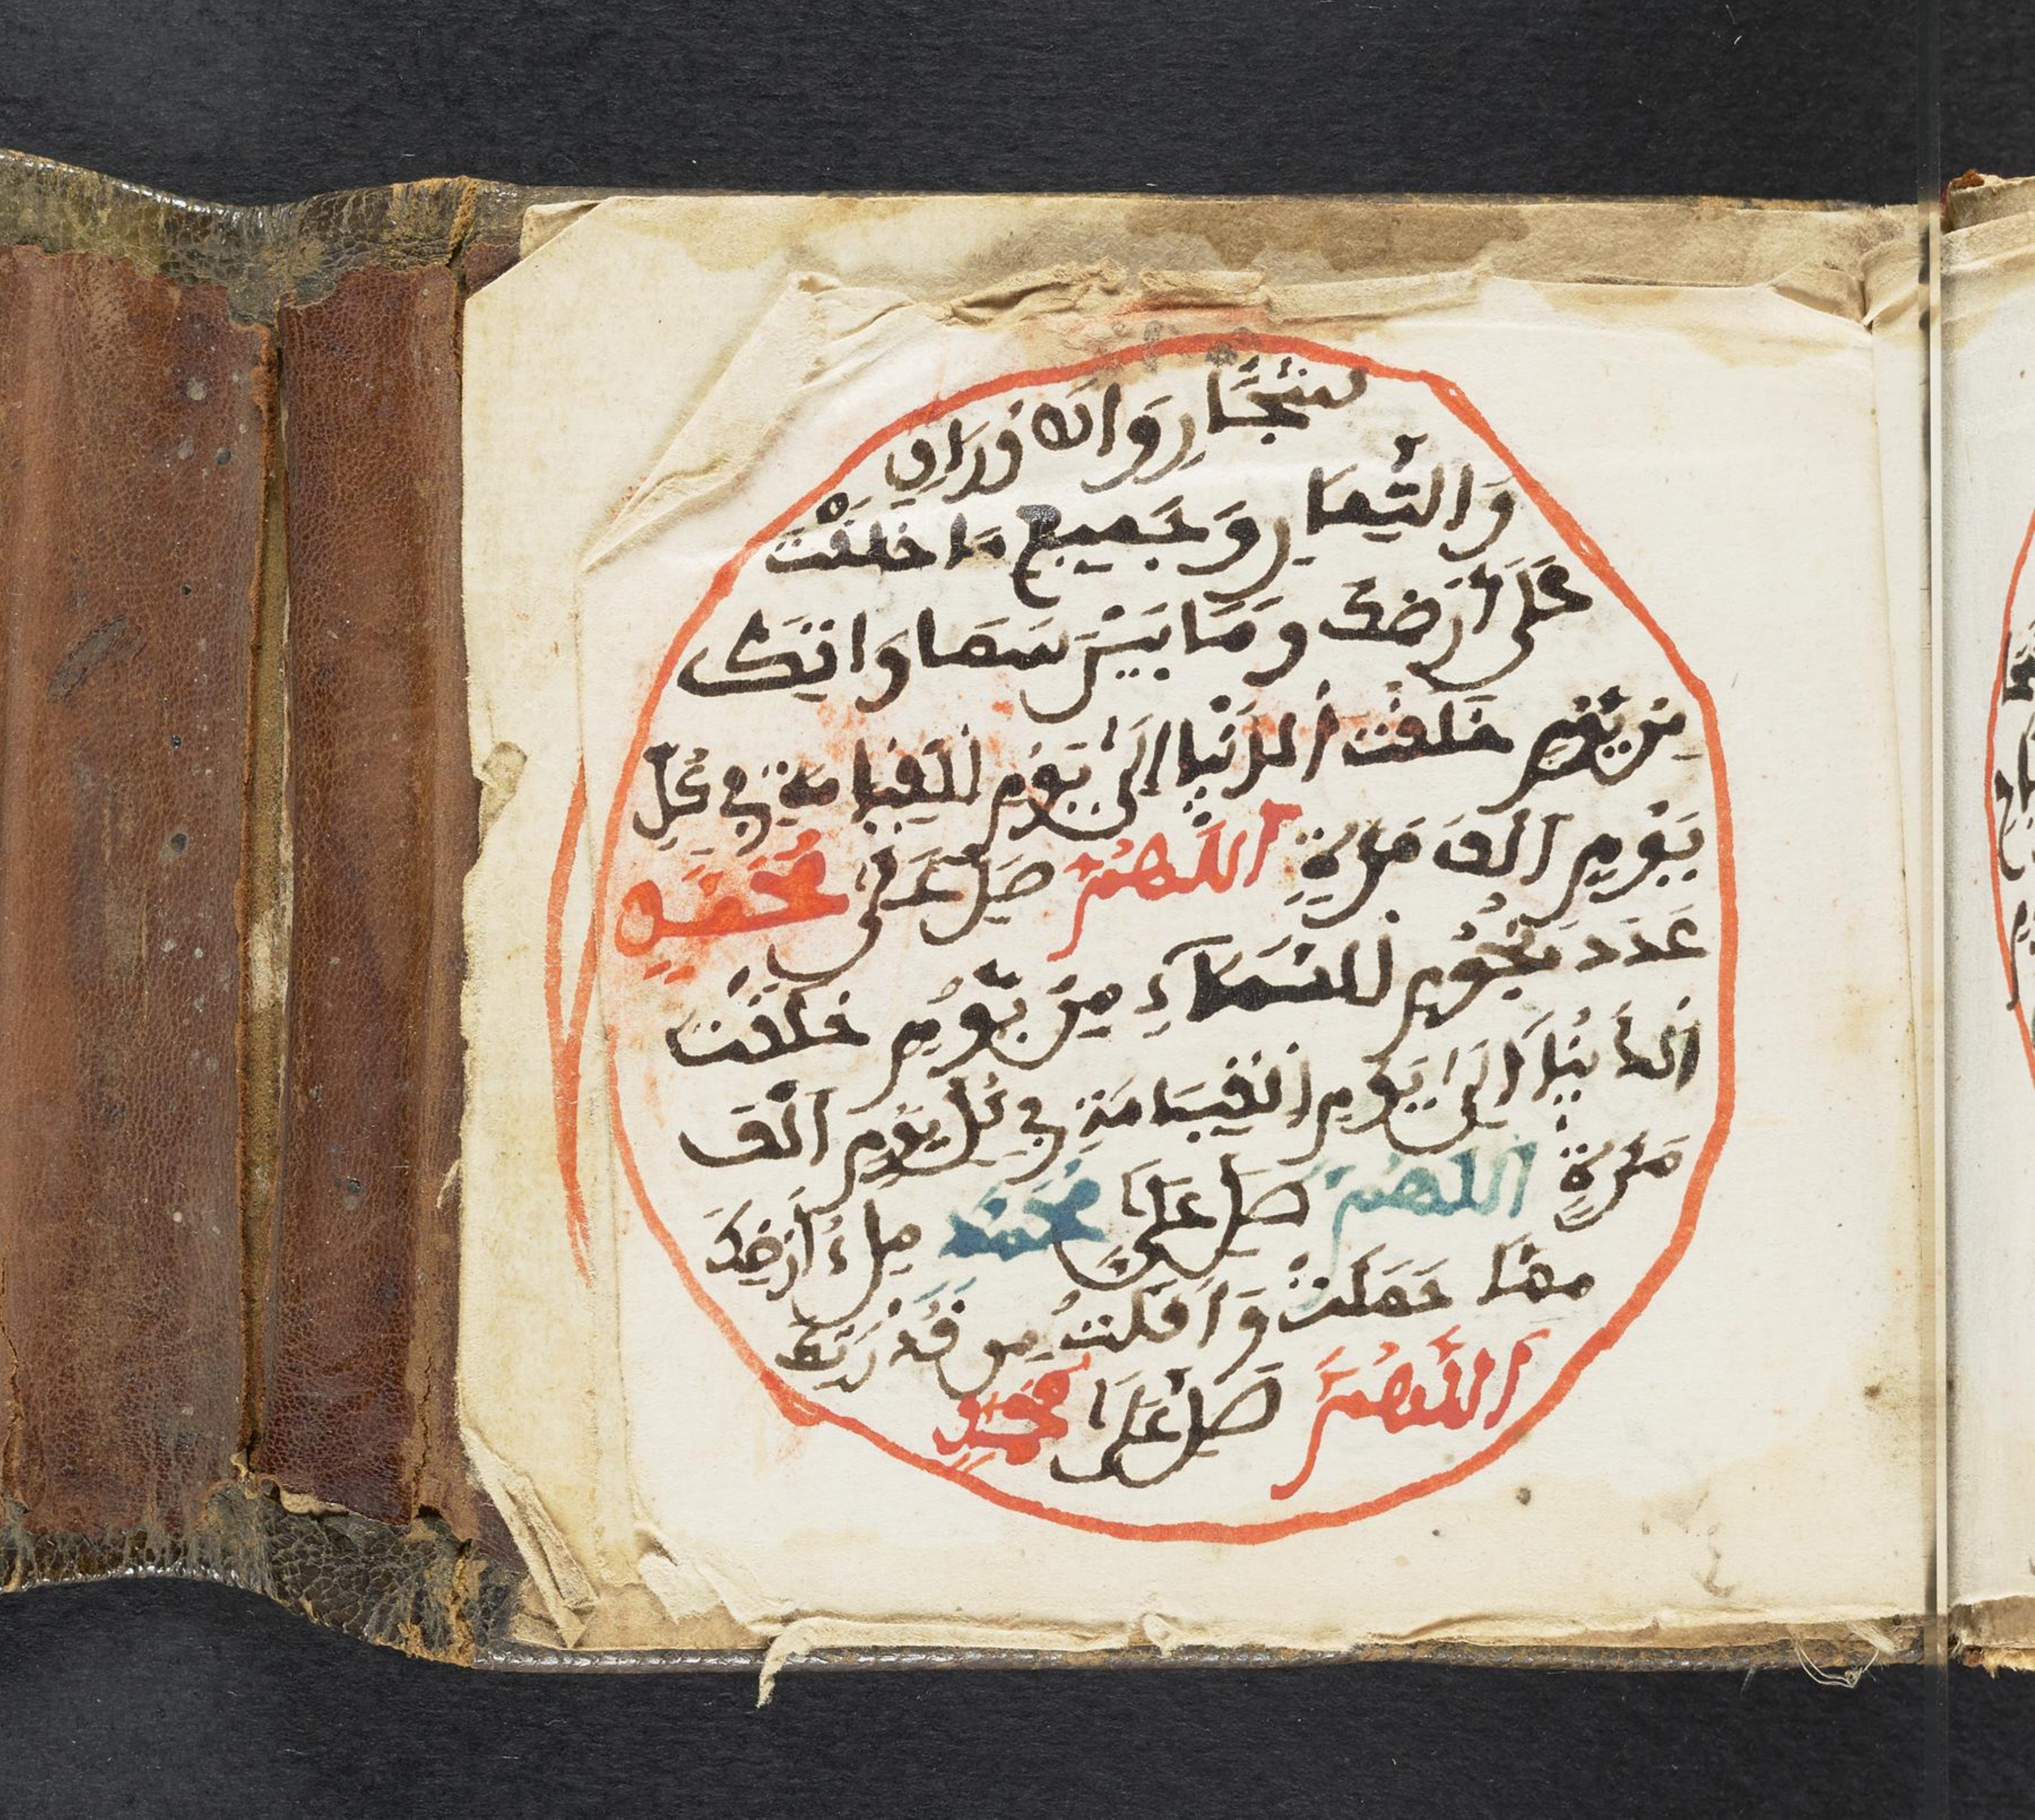 لاشجار والاوراق
والثمار وجميع ما خلقت
على أرضك وما بين سماواتك
من يوم خلقت الدنيا إلى يوم القيامة في كل
يوم ألف مرة اللهم صل على محمد
عدد نجوم السماء من يوم خلقت
الدنيا إلى يوم القيامة في كل يوم ألف
مرة اللهم صل على محمد ملء أرضك
مما حملت وأقلت من قدرتك
اللهم صل على محمد